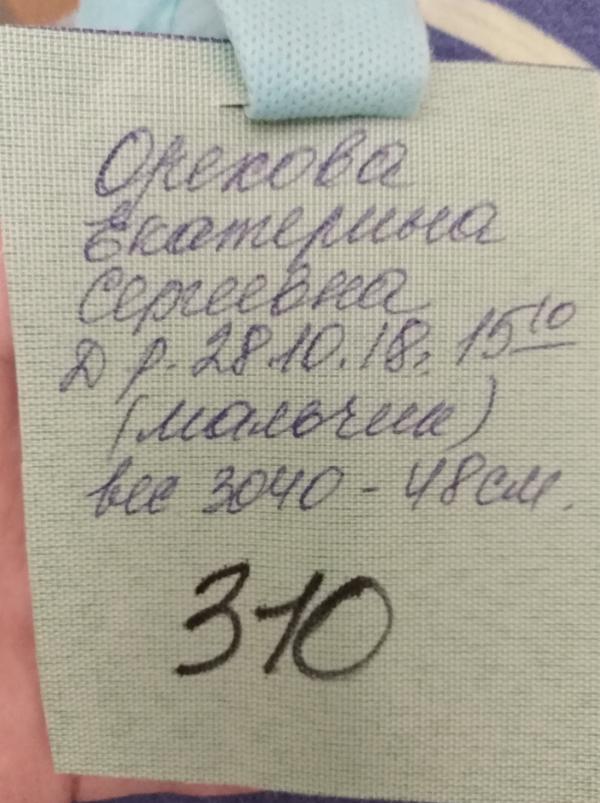 Орехова
Екатерина
Сергеевна
Д р. 28.10.18г 15 10
(мальчик)
вес 3040 - 48см.
310